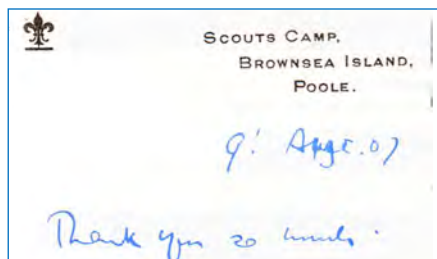 SCOUTS CAMP,
BROWNSEA ISLAND,
POOLE.
9. Augt. 07
Thank you so much.